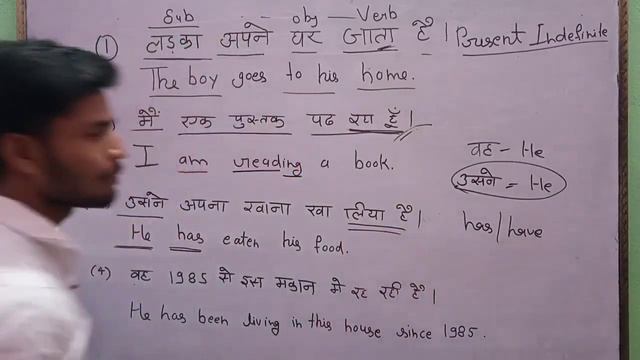 Sub - obj - Verb
① लड़का अपने घर जाता है । Present Indefinite
The boy goes to his home.
मैं एक पुस्तक पढ़ रहा हूँ ।
I am reading a book.
वह - He
उसने = He
has/have
उसने अपना खाना खा लिया है ।
He has eaten his food.
(4) वह 1985 से इस मकान में रह रही है ।
He has been living in this house since 1985.